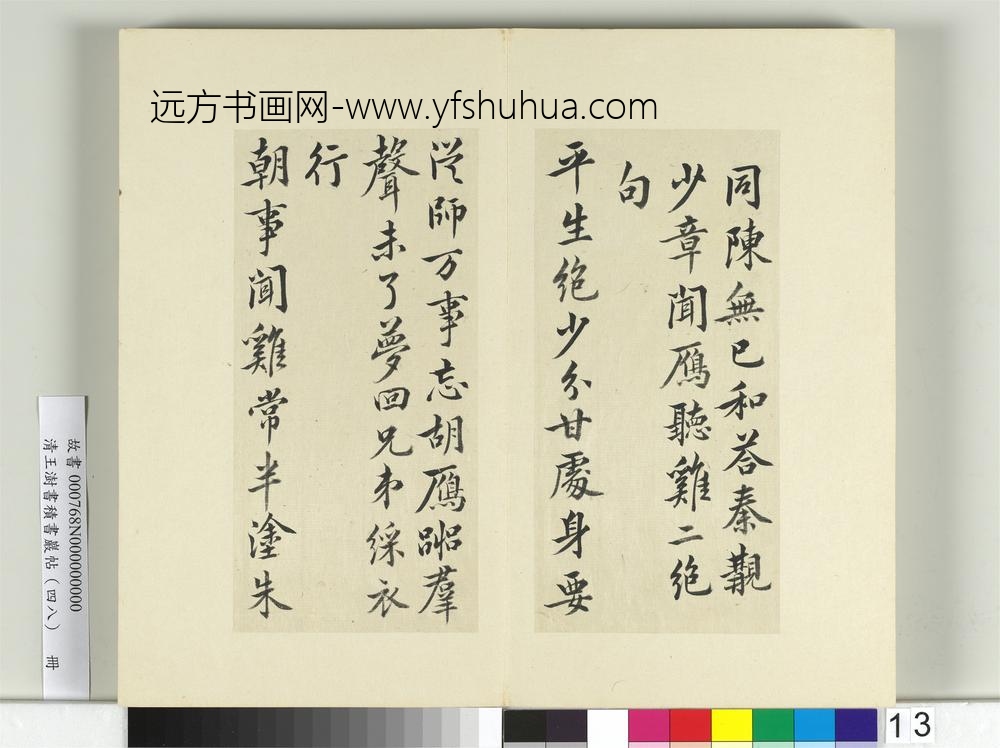 远方书画网-www.yfshuhua.com
同陳無己和荅秦覯
少章聞鴈聽雞二絶
句
平生絶少分甘處身要
從師万事忘胡鴈嘂羣
聲未了夢回兄弟綵衣
行
朝事聞雞常半塗朱
故書 000768N000000000
清王澍書積書巖帖(四八) 冊
13